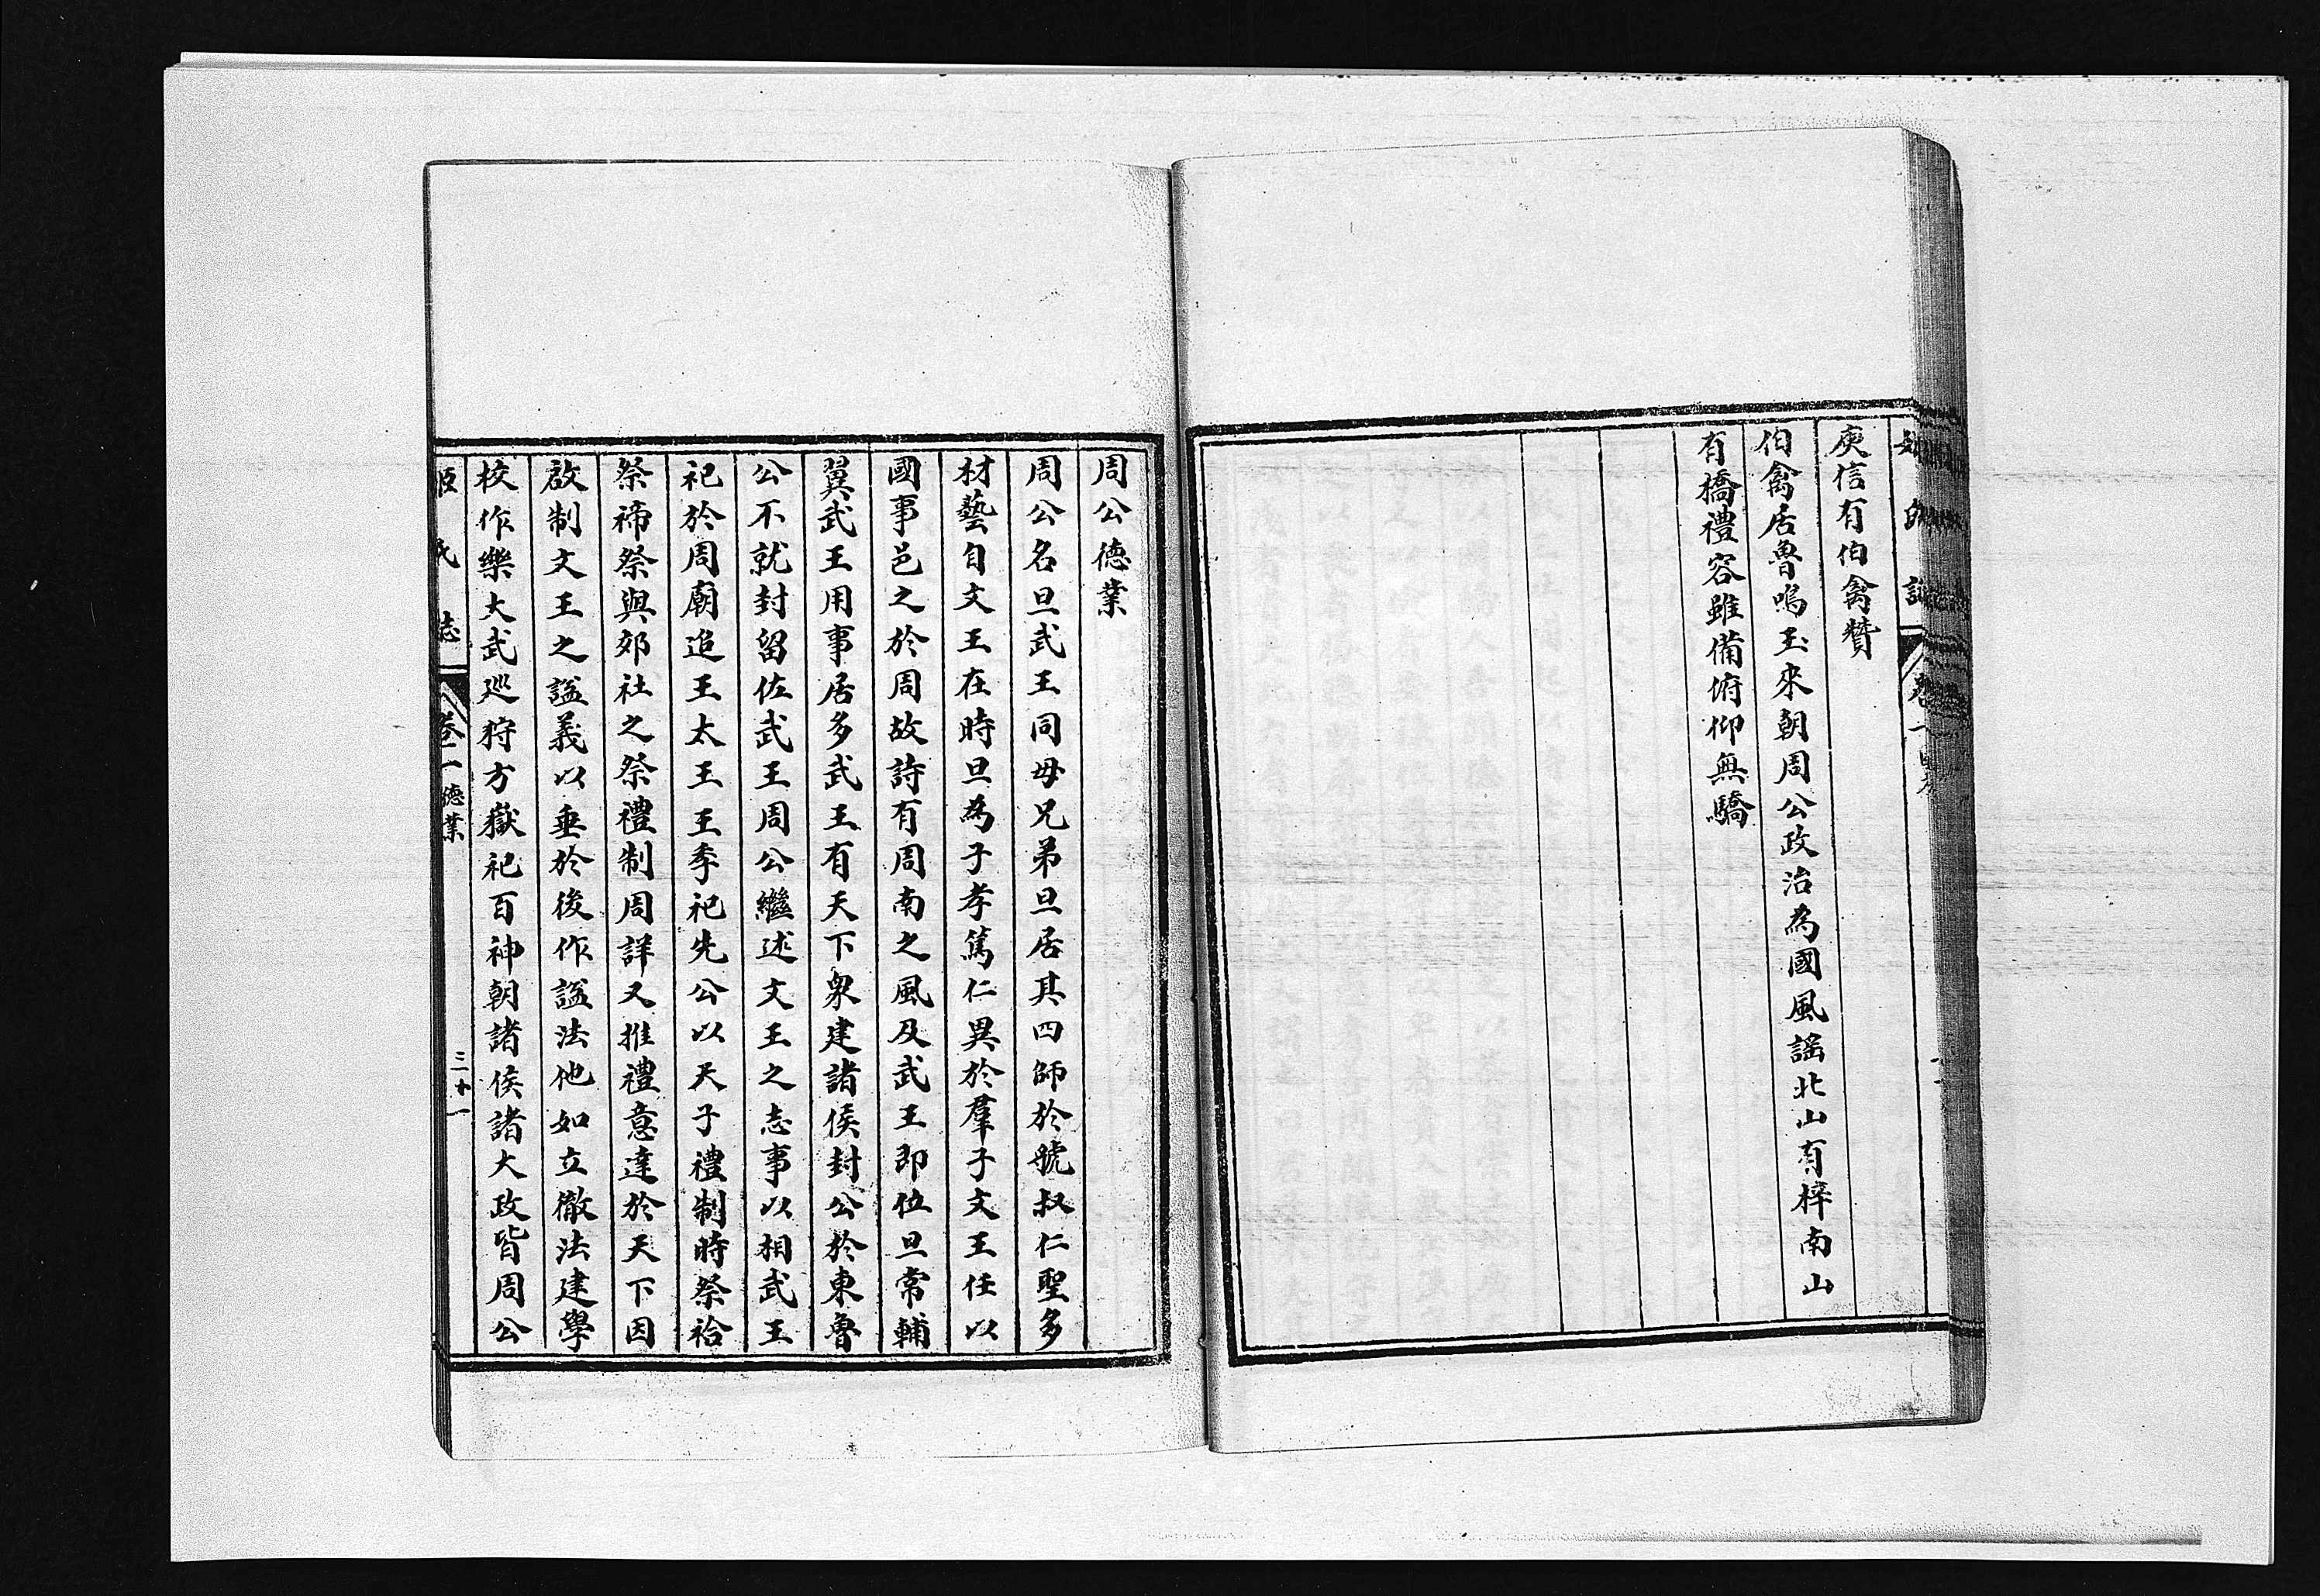 庾信有伯禽贊
伯禽居魯鳴玉來朝周公政治為國風謠北山有梓南山
有橋禮容雖備俯仰無驕
周公德業
周公名旦武王同母兄弟旦居其四師於虢叔仁聖多
材藝自文王在時旦為子孝篤仁異於羣子文王任以
國事邑之於周故詩有周南之風及武王即位旦常輔
翼武王用事居多武王有天下眾建諸侯封公於東魯
公不就封留佐武王周公繼述文王之志事以相武王
祀於周廟追王太王王季祀先公以天子禮制時祭祫
祭禘祭與郊社之祭禮制周詳又推禮意達於天下因
啟制文王之謚義以垂於後作謚法他如立徹法建學
校作樂大武巡狩方嶽祀百神朝諸侯諸大政皆周公
姬氏志 卷一 德業 三十一